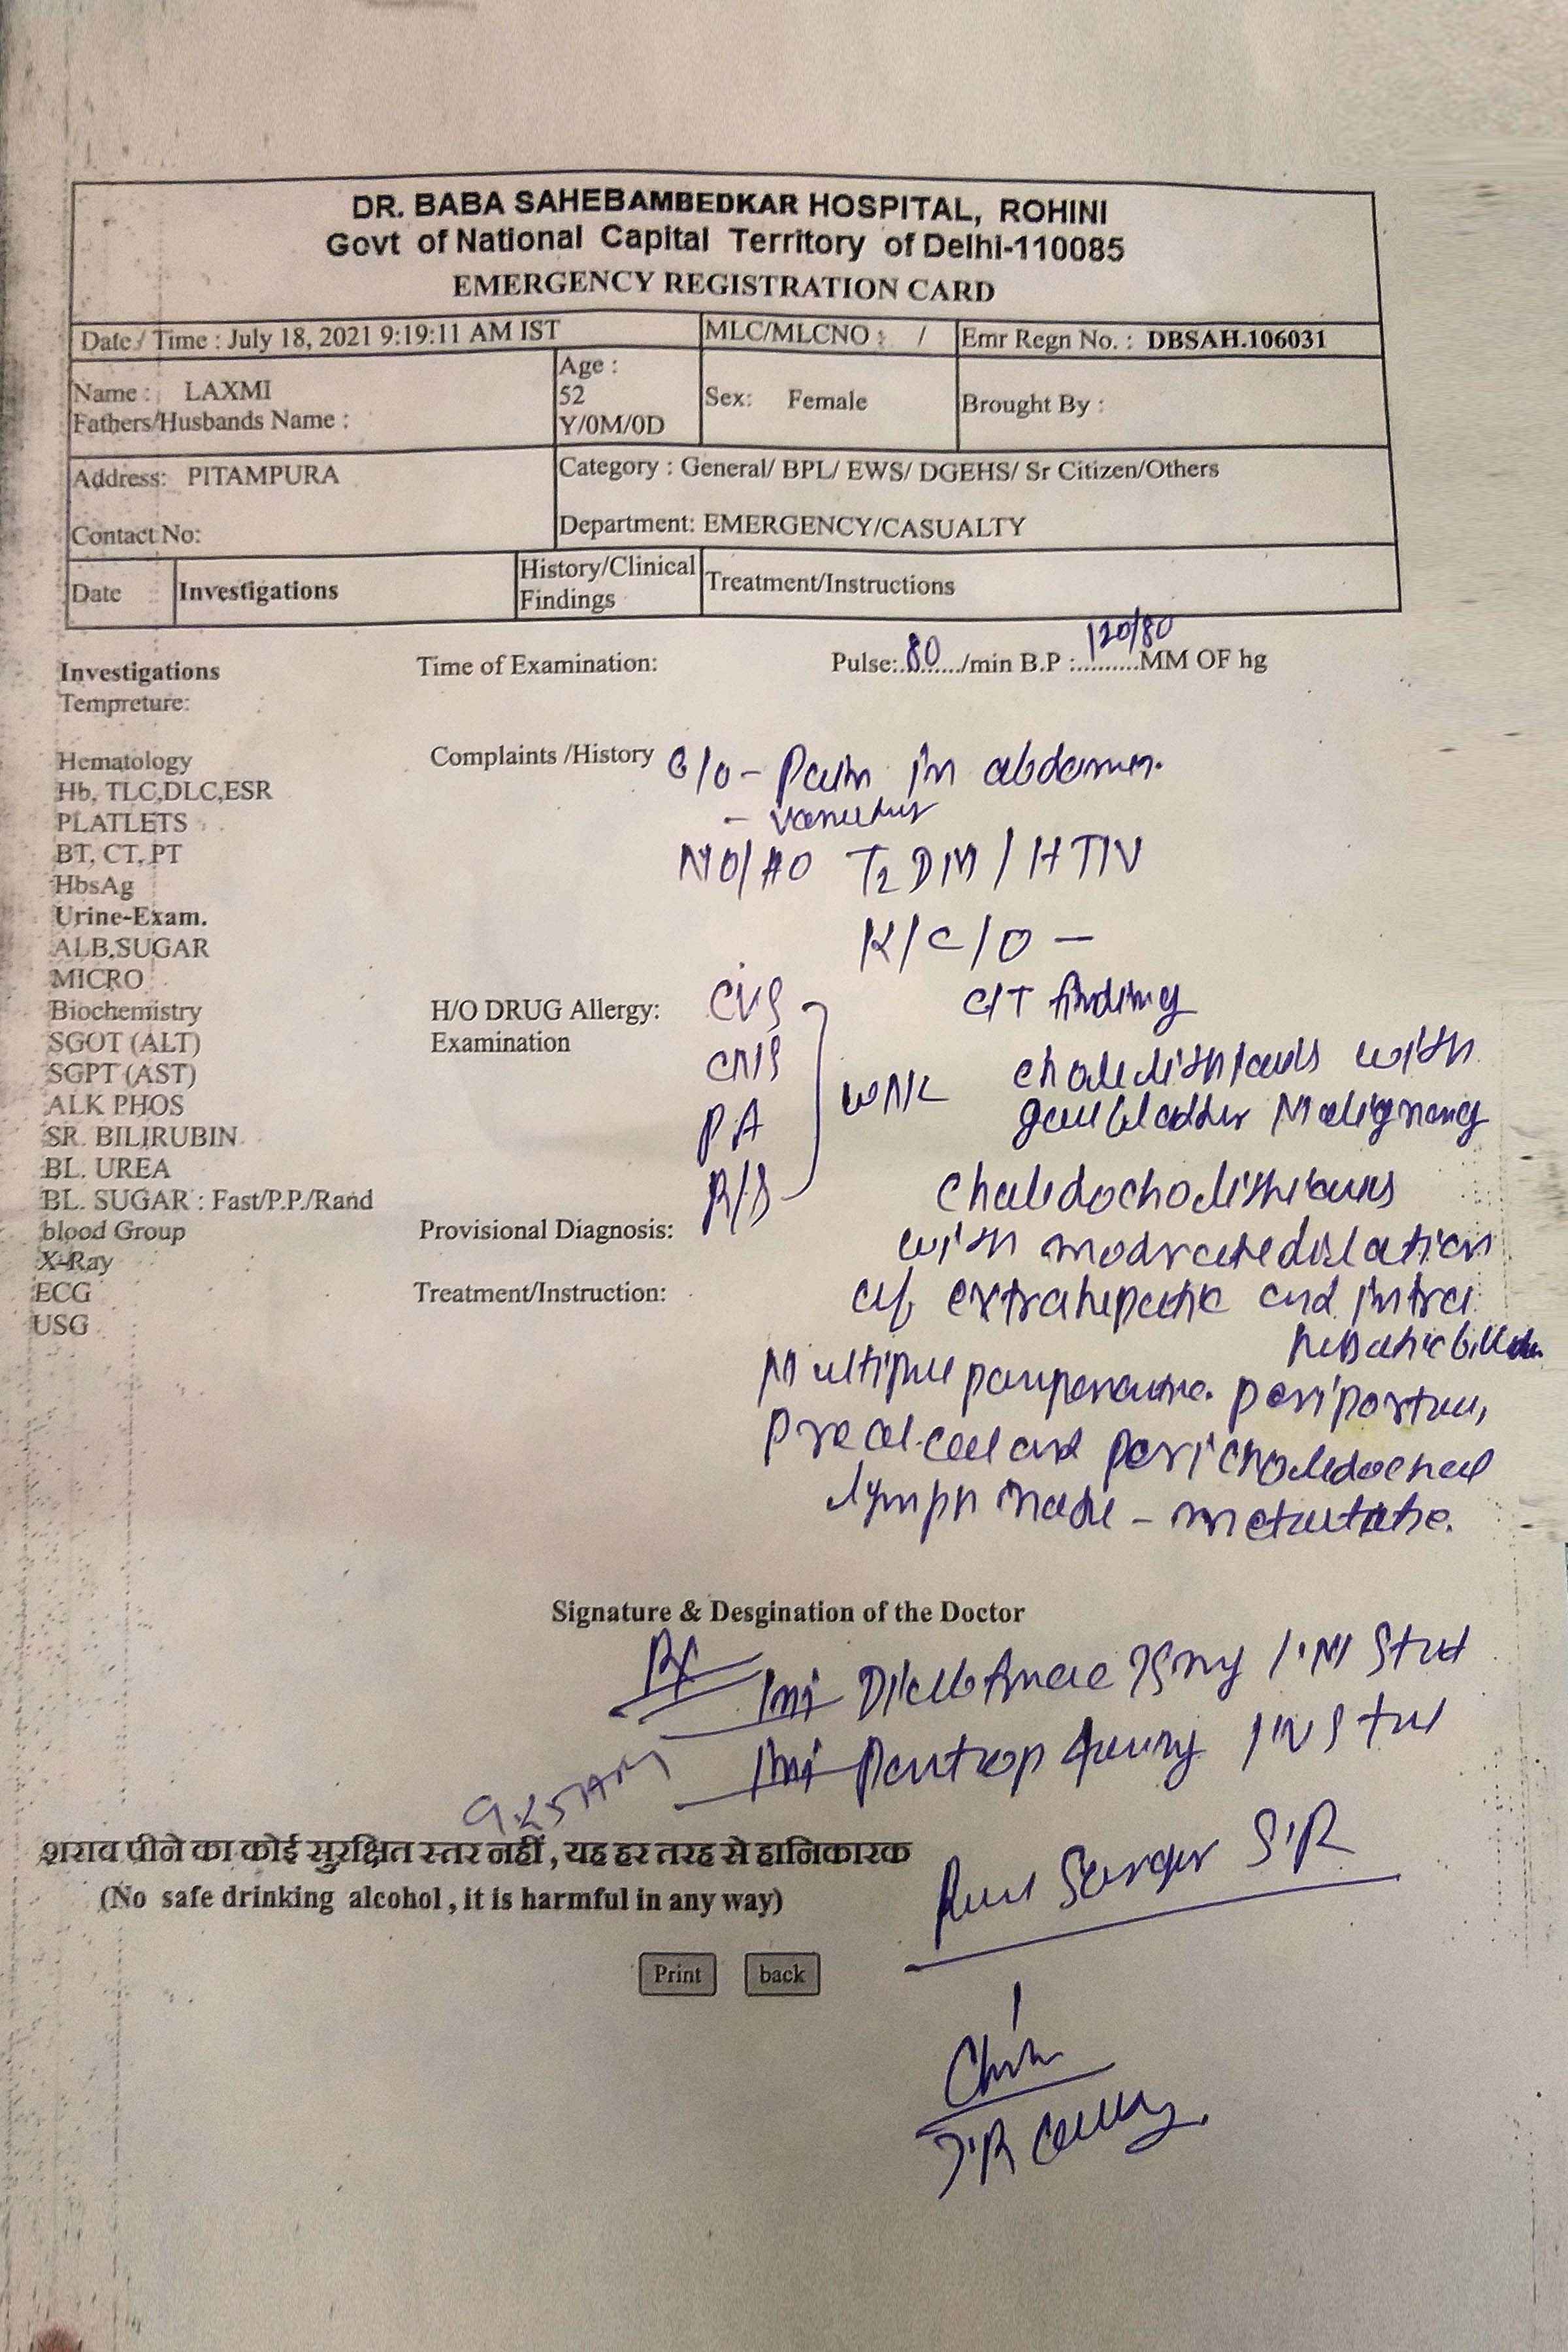 DR. BABA SAHEBAMBEDKAR HOSPITAL, ROHINI
Govt of National Capital Territory of Delhi-110085
EMERGENCY REGISTRATION CARD
Date / Time : July 18, 2021 9:19:11 AM IST MLC/MLCNO : / Emr Regn No. : DBSAH.106031
Name : LAXMI
Fathers/Husbands Name :
Age :
52
Y/0M/0D
Sex: Female
Brought By :
Address: PITAMPURA
Contact No:
Category : General/ BPL/ EWS/ DGEHS/ Sr Citizen/Others
Department: EMERGENCY/CASUALTY
Date Investigations History/Clinical Findings Treatment/Instructions
Investigations Time of Examination: Pulse:.80...../min B.P :.120/80.....MM OF hg
Tempreture:
Hematology
Hb, TLC,DLC,ESR
PLATLETS
BT, CT, PT
HbsAg
Urine-Exam.
ALB,SUGAR
MICRO
Biochemistry
SGOT (ALT)
SGPT (AST)
ALK PHOS
SR. BILIRUBIN
BL. UREA
BL. SUGAR : Fast/P.P./Rand
blood Group
X-Ray
ECG
USG
Complaints /History C/o - Pain in abdomen.
N/O/HO T2 DM / HTN
K/C/O -
H/O DRUG Allergy:
Examination
CVS
CNS
PA
R/S
WNL
C/T finding
cholelithiasis with
gallbladder Malignancy
Choledocholithiasis
with moderate dilation
of extrahepatic and intra
hepatic
Multiple periportal,
and pericholedochal
lymph node - metastatic.
Provisional Diagnosis:
Treatment/Instruction:
Signature & Desgination of the Doctor
Rx
Inj Diclofenac 75mg I'M Stat
Inj Pantop 40mg IV Stat
9:25 AM
शराब पीने का कोई सुरक्षित स्तर नहीं , यह हर तरह से हानिकारक
(No safe drinking alcohol , it is harmful in any way)
S'R
Print back